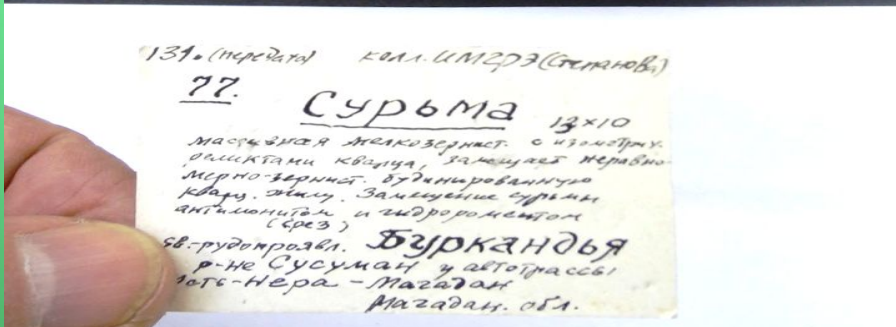 131. (передато) колл. ИМГРЭ (Степанова)
77.
Сурьма 13×10
массивная мелкозернист. с изометрич.
реликтами кварца, замещает неравно-
мерно-зернист. будинированную
кварц. жилу. Замещение сурьмы
антимонитом и гидроромеитом
(срез)
рудопроявл. Бурканdья
р-не Сусуман у автотрассы
Усть-Нера - Магадан
Магадан. обл.